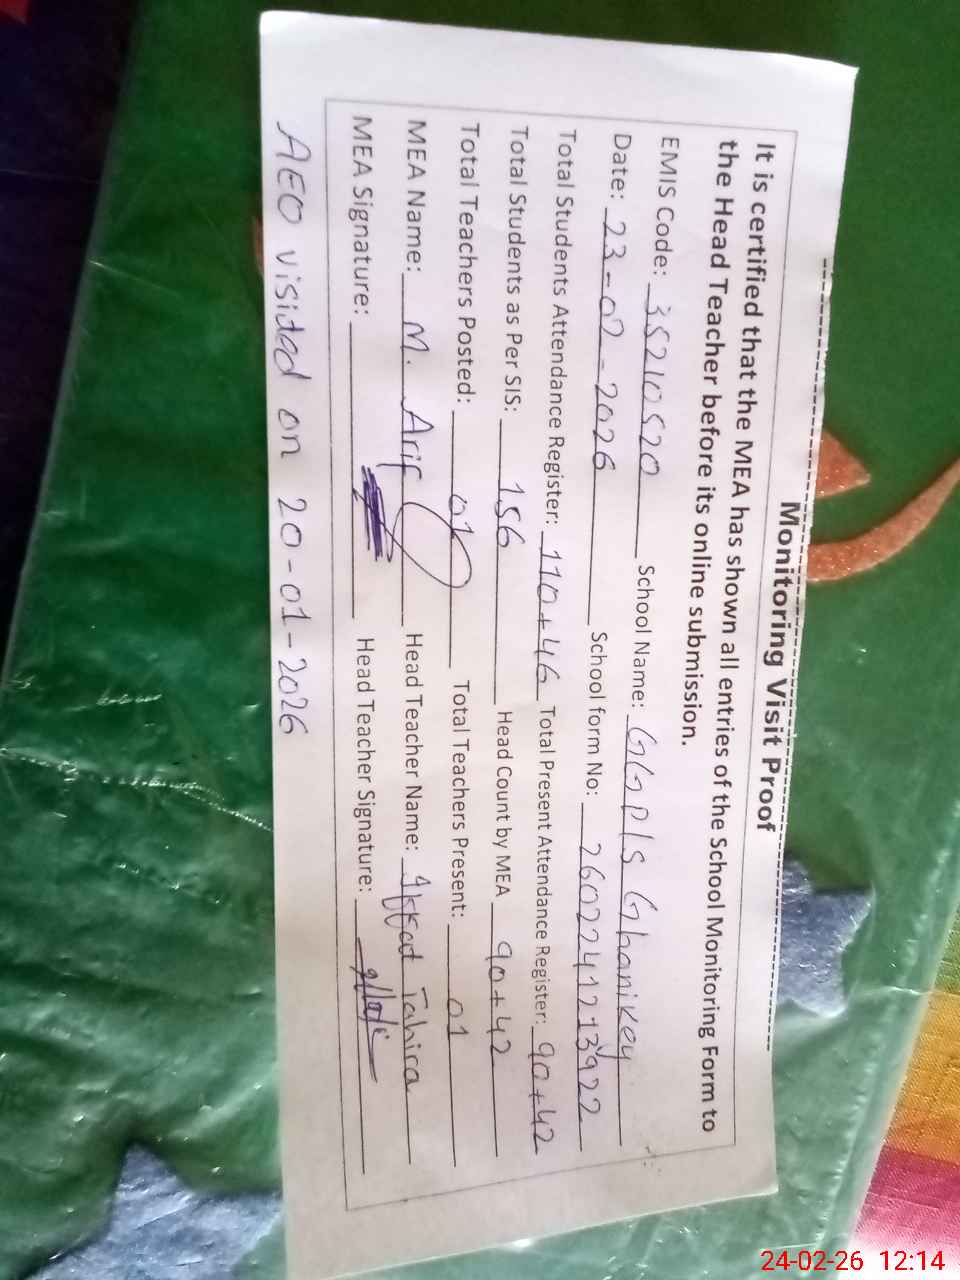 Monitoring Visit Proof
It is certified that the MEA has shown all entries of the School Monitoring Form to
the Head Teacher before its online submission.
EMIS Code: 35210520 School Name: GGPIS Ghanikey
Date: 23-02-2026 School form No: 2602241213922
Total Students Attendance Register: 110+46 Total Present Attendance Register: 90+42
Total Students as Per SIS: 156 Head Count by MEA 90+42
Total Teachers Posted: 01 Total Teachers Present: 01
MEA Name: M. Arif Head Teacher Name: Tahira
MEA Signature: Head Teacher Signature:
AEO visited on 20-01-2026
24-02-26 12:14